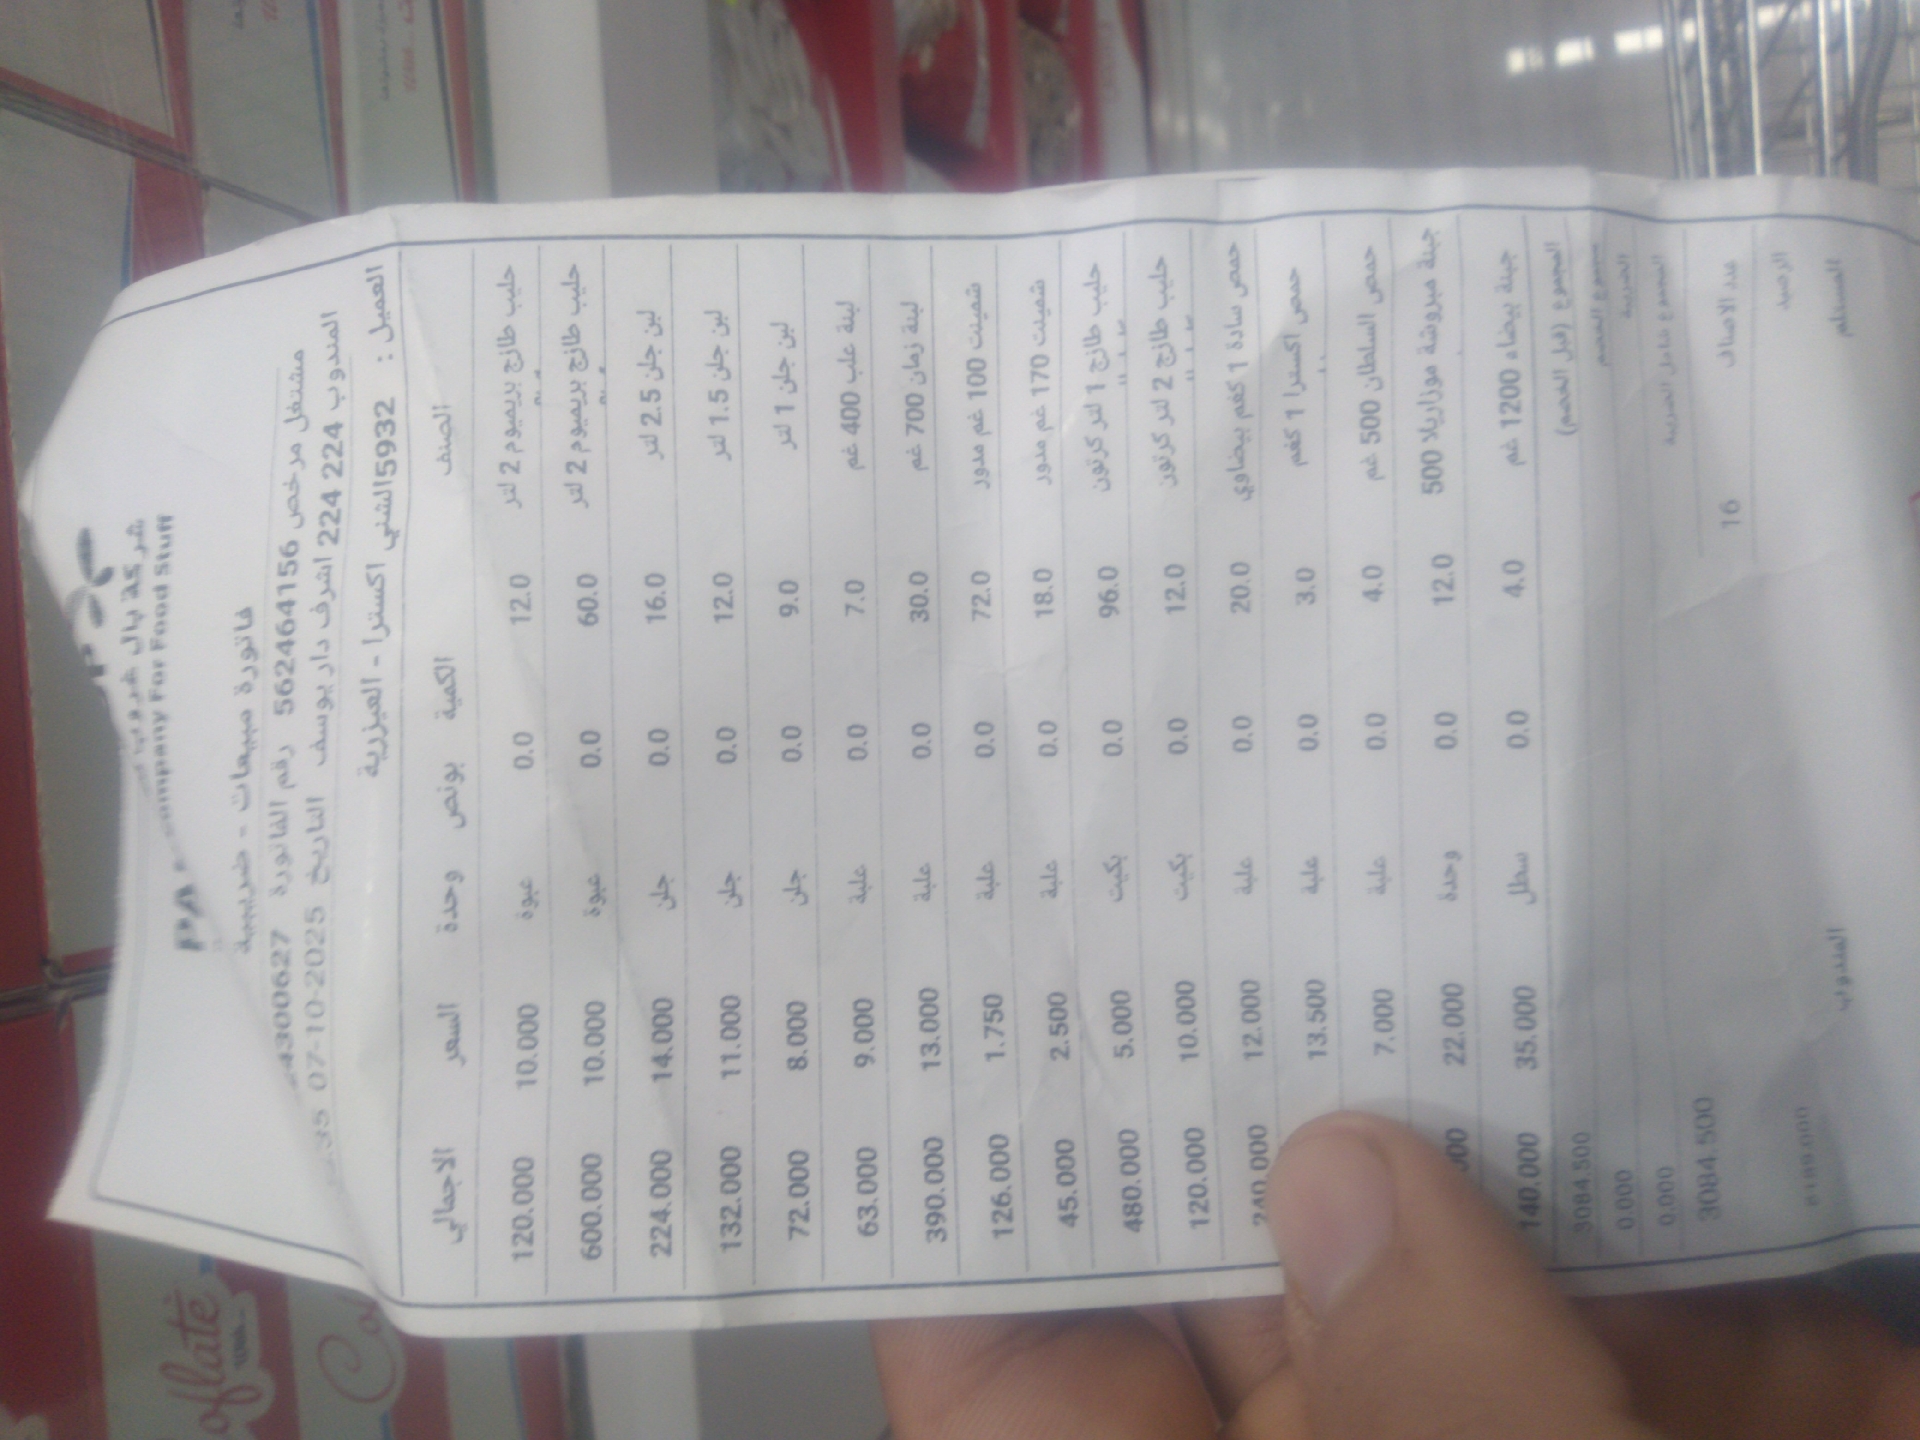 شركة بال
Company For Food Stuff
فاتورة مبيعات - ضريبية
مشتغل مرخص 562464156 رقم الفاتورة 24300627
المندوب 224 224 اشرف دار يوسف التاريخ 07-10-2025
العميل : 5932الشني اكسترا - العيزرية
الصنف الكمية بونص وحدة السعر الاجمالي
حليب طازج بريميوم 2 لتر 12.0 0.0 عبوة 10.000 120.000
حليب طازج بريميوم 2 لتر 60.0 0.0 عبوة 10.000 600.000
لبن جلن 2.5 لتر 16.0 0.0 جلن 14.000 224.000
لبن جلن 1.5 لتر 12.0 0.0 جلن 11.000 132.000
لبن جلن 1 لتر 9.0 0.0 جلن 8.000 72.000
لبنة علب 400 غم 7.0 0.0 علبة 9.000 63.000
لبنة زمان 700 غم 30.0 0.0 علبة 13.000 390.000
شمينت 100 غم مدور 72.0 0.0 علبة 1.750 126.000
شمينت 170 غم مدور 18.0 0.0 علبة 2.500 45.000
حليب طازج 1 لتر كرتون 96.0 0.0 بكيت 5.000 480.000
حليب طازج 2 لتر كرتون 12.0 0.0 بكيت 10.000 120.000
حمص سادة 1 كغم بيضاوي 20.0 0.0 علبة 12.000 240.000
حمص اكسترا 1 كغم 3.0 0.0 علبة 13.500
حمص السلطان 500 غم 4.0 0.0 علبة 7.000
جبنة مبروشة موزاريلا 500 12.0 0.0 وحدة 22.000
جبنة بيضاء 1200 غم 4.0 0.0 سطل 35.000 140.000
المجموع (قبل الخصم) 3084.500
مجموع الخصم 0.000
الضريبة 0.000
المجموع شامل الضريبة 3084.500
عدد الاصناف 16
الرصيد
المستلم المندوب